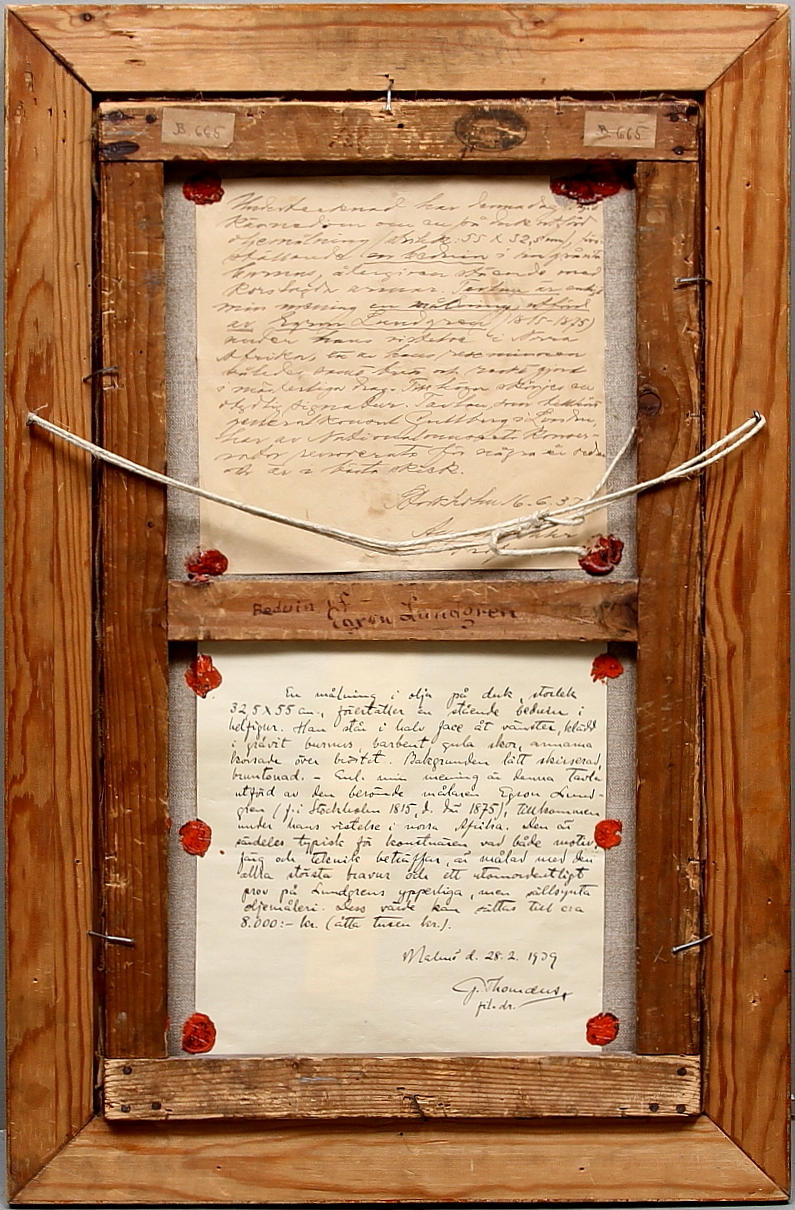 B 665
B 665
Undertecknad har denna dag
kännedom om en på duk utförd
oljemålning, storlek: 55 X 32,5 cm, före-
ställande en beduin i
burnus, återgiven stående med
korslagda armar. Tavlan är enligt
min mening en målning utförd
av Egron Lundgren (1815-1875)
under hans vistelse i Norra
Afrika,
således
i
otydlig signatur. Tavlan, som tillhört
generalkonsul Guttberg i London,
har av Nationalmuseets konser-
vator renoverats för några år sedan
och är i bästa skick.
Stockholm 16.6.37
Beduin af
Egron Lundgren
En målning i olja på duk, storlek
32,5 X 55 cm., föreställer en stående beduin i
helfigur. Han står i halv face åt vänster, klädd
i gråvit burnus, barbent, gula skor, armarna
korsade över bröstet. Bakgrunden lätt skisserad,
bruntonad. – Enl. min mening är denna tavla
utförd av den berömde målaren Egron Lund-
gren (f. i Stockholm 1815, d. 1875), tillkommen
under hans vistelse i norra Afrika. Den är
särdeles typisk för konstnären vad både motiv,
färg och teknik beträffar, är målad med den
allra största bravur och ett utomordentligt
prov på Lundgrens ypperliga, men sällsynta
oljemåleri. Dess värde kan sättas till ca
8.000:- kr. (åtta tusen kr.).
Malmö d. 28.2. 1939
G. Thomæus,
fil. dr.